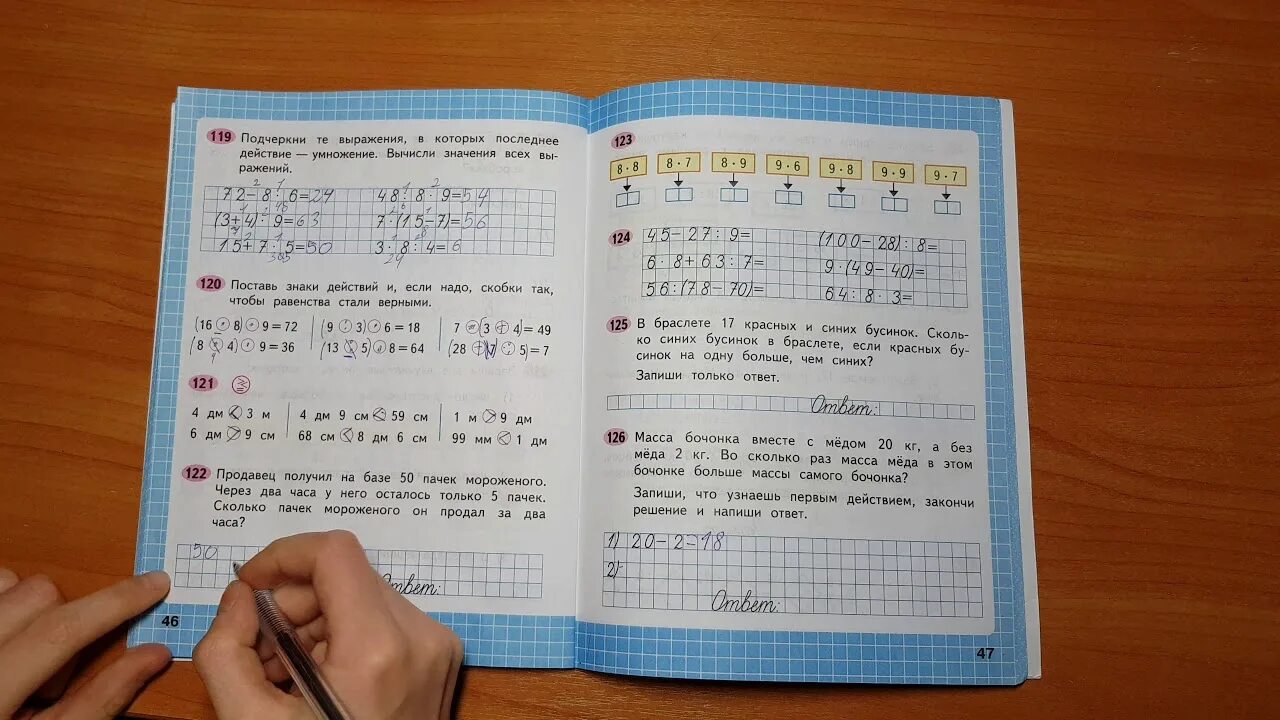 119 Подчеркни те выражения, в которых последнее
действие — умножение. Вычисли значения всех вы-
ражений.
72-8·6=24 48:8·9=54
(3+4)·9=63 7·(15-7)=56
15+7·5=50 3·8:4=6
120 Поставь знаки действий и, если надо, скобки так,
чтобы равенства стали верными.
(16 8) 9=72 (9 : 3) · 6=18 7 (3 + 4)=49
(8 4) 9=36 (13 - 5) · 8=64 (28 + 7) : 5)=7
121
4 дм < 3 м 4 дм 9 см < 59 см 1 м > 9 дм
6 дм > 9 см 68 см < 8 дм 6 см 99 мм < 1 дм
122 Продавец получил на базе 50 пачек мороженого.
Через два часа у него осталось только 5 пачек.
Сколько пачек мороженого он продал за два
часа?
50
Ответ:
46
123
8·8 8·7 8·9 9·6 9·8 9·9 9·7
124 45-27:9= (100-28):8=
6·8+63:7= 9·(49-40)=
56:(78-70)= 64:8·3=
125 В браслете 17 красных и синих бусинок. Сколь-
ко синих бусинок в браслете, если красных бу-
синок на одну больше, чем синих?
Запиши только ответ.
Ответ:
126 Масса бочонка вместе с мёдом 20 кг, а без
мёда 2 кг. Во сколько раз масса мёда в этом
бочонке больше массы самого бочонка?
Запиши, что узнаешь первым действием, закончи
решение и напиши ответ.
1) 20-2=18
2)
Ответ:
47